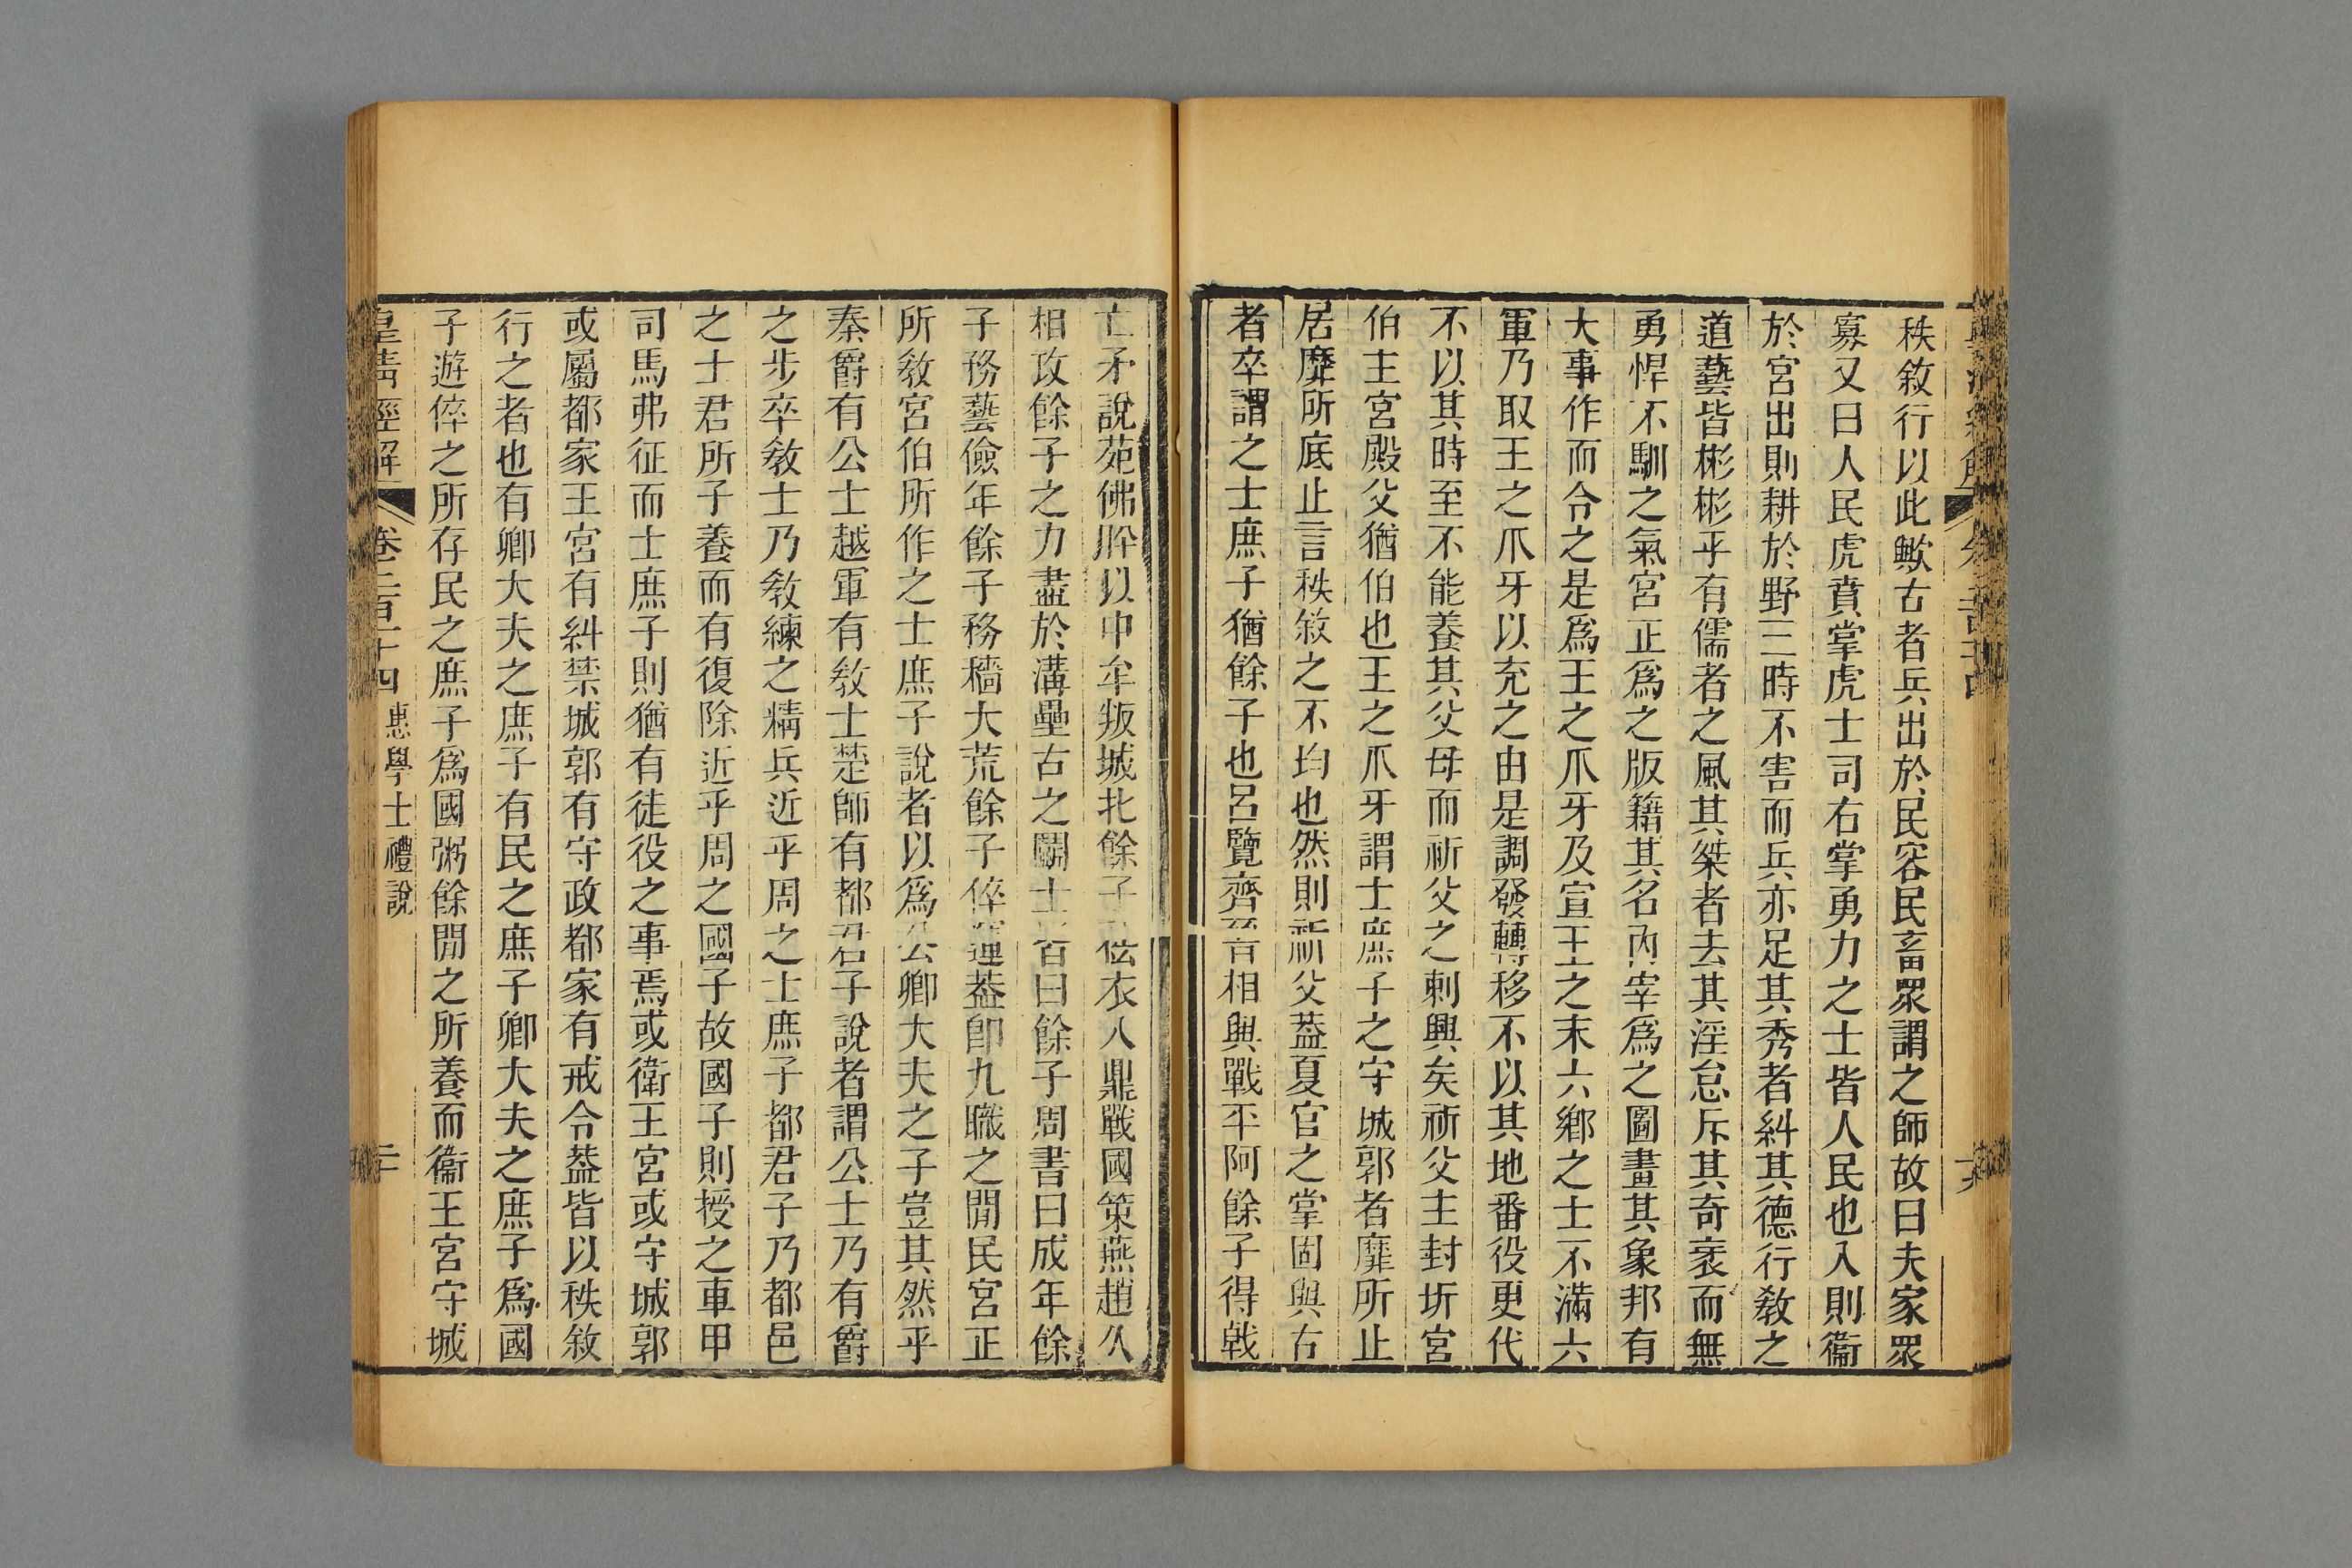 秩敘行以此歟古者兵出於民容民畜眾謂之師故曰夫家眾
寡又曰人民虎賁掌虎士司右掌勇力之士皆人民也入則衞
於宮出則耕於野三時不害而兵亦足其秀者糾其德行敎之
道藝皆彬彬乎有儒者之風其桀者去其淫怠斥其奇衺而無
勇悍不馴之氣宮正爲之版籍其名內宰爲之圖畫其象邦有
大事作而令之是爲王之爪牙及宣王之末六鄉之士不滿六
軍乃取王之爪牙以充之由是調發轉移不以其地番役更代
不以其時至不能養其父母而祈父之刺興矣祈父主封圻宮
伯主宮殿父猶伯也王之爪牙謂士庶子之守城郭者靡所止
居靡所底止言秩敘之不均也然則祈父葢夏官之掌固與古
者卒謂之士庶子猶餘子也呂覽齊晉相與戰平阿餘子得戟
亡矛說苑佛肸以中牟叛城北餘子 袪衣入鼎戰國策燕趙久
相攻餘子之力盡於溝壘古之鬭士 皆曰餘子周書曰成年餘
子務藝儉年餘子務穡大荒餘子倅運葢卽九職之閒民宮正
所敎宮伯所作之士庶子說者以爲公卿大夫之子豈其然乎
秦爵有公士越軍有敎士楚師有都君子說者謂公士乃有爵
之步卒敎士乃敎練之精兵近乎周之士庶子都君子乃都邑
之士君所子養而有復除近乎周之國子故國子則授之車甲
司馬弗征而士庶子則猶有徒役之事焉或衛王宮或守城郭
或屬都家王宮有糾禁城郭有守政都家有戒令葢皆以秩敘
行之者也有卿大夫之庶子有民之庶子卿大夫之庶子爲國
子遊倅之所存民之庶子爲國粥餘閒之所養而衞王宮守城
皇淸經解 卷二百十四 惠學士禮說 二十